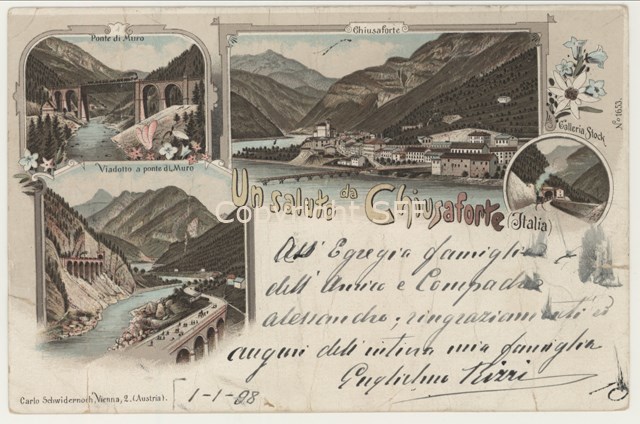 Ponte di Muro
Chiusaforte
Nº 1653.
Galleria Stock
Viadotto a ponte di Muro
Un saluto da Chiusaforte (Italia)
All' Egregia famiglia
dell' Amico e Compadre
alessandro; ringraziamenti ed
auguri dell' intera mia famiglia
Guglielmo Rizzi
1-1-98
Carlo Schwidernoch, Vienna, 2. (Austria).